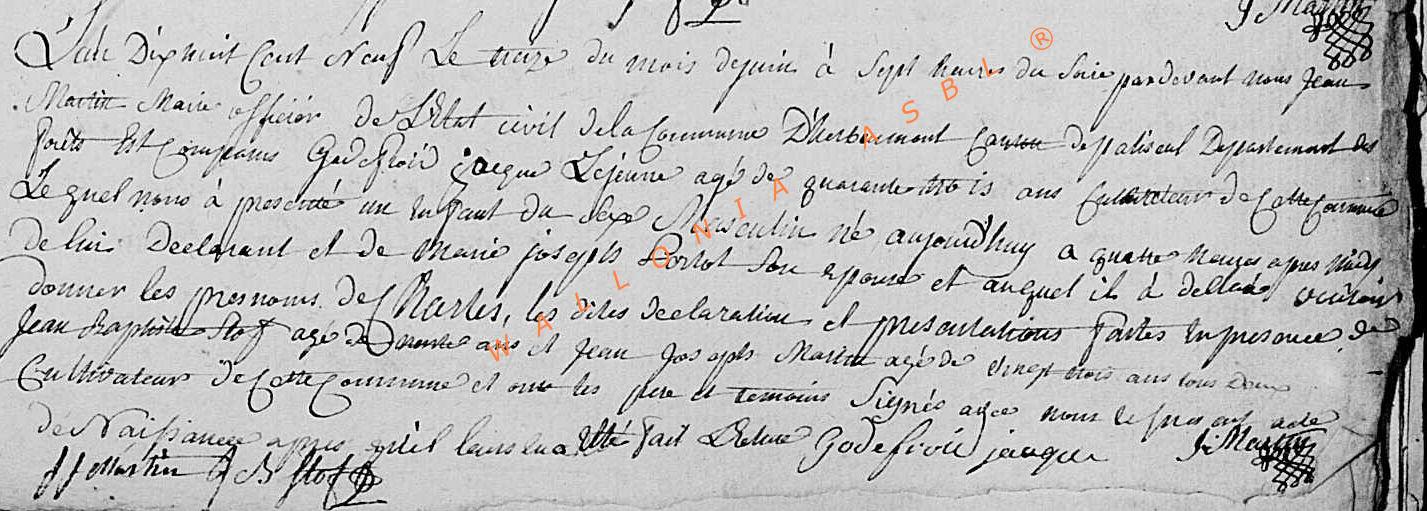 L'an Dix huit Cent Neuf Le treize du mois dejuin à Sept heures du Soire pardevant nous Jean
Martin Maire officier de L'Etat civil dela Commune D'herbeumont Canton depaliseul Departement des
forêts Est Comparus Godefroid jacque Lejeune agé de quarante trois ans Cultivateur de Cette Commune
Lequel nous à presenté un Enfant du Sexe Masculin né aujourd'huy a quatre heures apres Midy
de lui Declarant et de Marie joseph Son Epouse et auquel il à declaré vouloir
donner les presnoms de Charles, les dites declaration et presentations faites Enpresence de
Jean Baptiste Stof agé de ans et Jean Joseph Martin agé de vingt trois ans tous Deux
Cultivateur de Cette Commune et ont les pere et temoins Signés avec nous le present acte
de Naissance apres qu'il leurs en a Etté fait Lecture Godefroid jacque J: Martin
JJ Martin J B Stof
WALLONIA ASBL ®